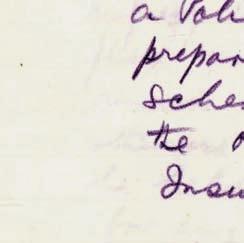 a Vol
prepar
sche
the
Insu